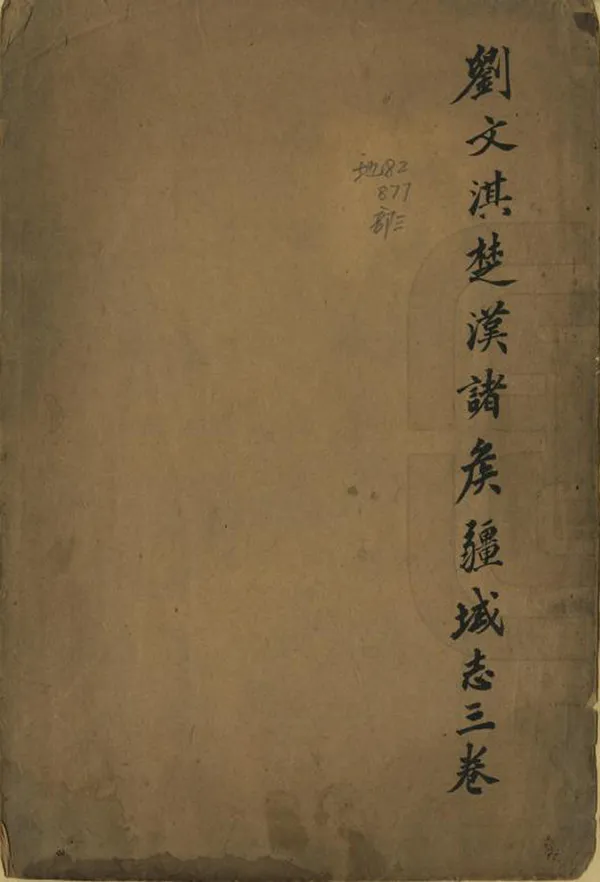 劉文淇楚漢諸矦疆域志三卷
地182
877
部三